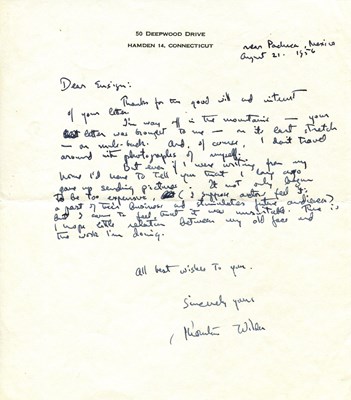 50 DEEPWOOD DRIVE
HAMDEN 14, CONNECTICUT
near Pachuca, Mexico
August 21. 1956
Dear Ensign:
Thanks for the good will and interest
of your letter.
I'm way off in the mountains — your
letter was brought to me — on its last stretch
— on mule-back. And, of course, I don't travel
around with photographs of myself.
But even if I were writing from my
home I'd have to tell you that I long ago
gave up sending pictures. It not only began
to be too expensive, (I suppose actors feel it:
a part of their business and stimulates future audiences)
but I came to feel that it was unrealistic. There is
I hope little relation between my old face and
the work I'm doing.
All best wishes to you.
Sincerely yours
Thornton Wilder